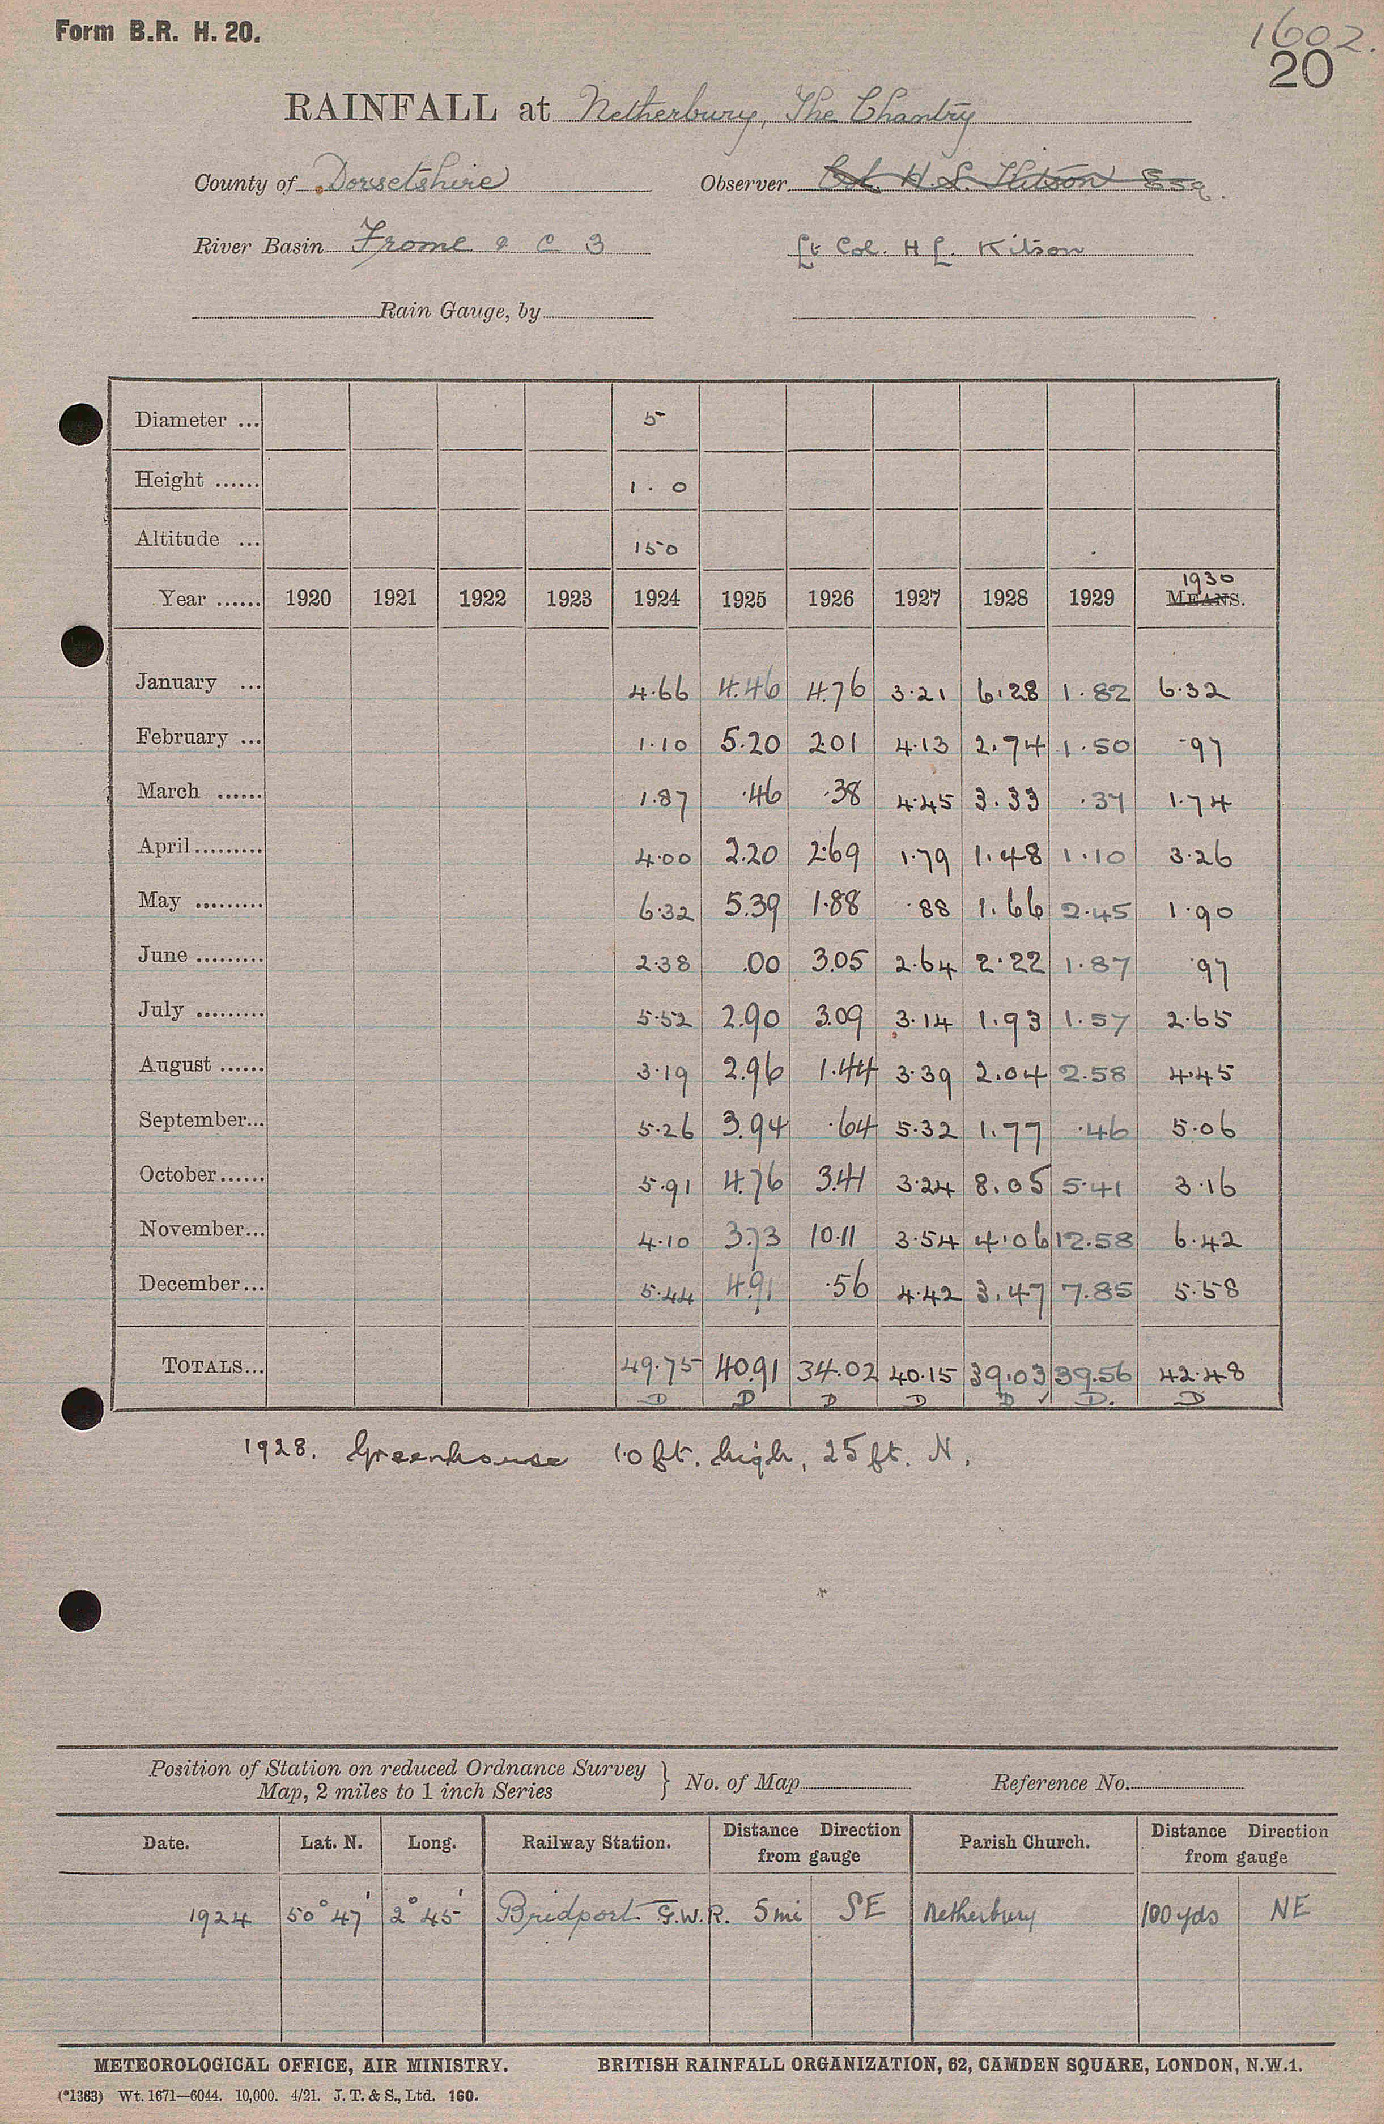 Form B.R. H. 20.
1602.
20
RAINFALL at Netherbury, The Chantry
County of Dorsetshire Observer Col. H. L. Kitson Esq.
River Basin Frome & C 3 Lt Col. H L. Kitson
Rain Gauge, by
Diameter ... 5
Height ...... 1 . 0
Altitude ... 150
1930
Year ...... 1920 1921 1922 1923 1924 1925 1926 1927 1928 1929 MEANS.
January ... 4.66 4.46 4.76 3.21 6.28 1.82 6.32
February ... 1.10 5.20 2.01 4.13 2.74 1.50 .97
March ...... 1.87 .46 .38 4.45 3.33 .37 1.74
April......... 4.00 2.20 2.69 1.79 1.48 1.10 3.26
May ......... 6.32 5.39 1.88 .88 1.66 2.45 1.90
June ......... 2.38 .00 3.05 2.64 2.22 1.87 .97
July ......... 5.52 2.90 3.09 3.14 1.93 1.57 2.65
August ...... 3.19 2.96 1.44 3.39 2.04 2.58 4.45
September... 5.26 3.94 .64 5.32 1.77 .46 5.06
October...... 5.91 4.76 3.41 3.24 8.05 5.41 3.16
November... 4.10 3.73 10.11 3.54 4.06 12.58 6.42
December... 5.44 4.91 .56 4.42 3.47 7.85 5.58
TOTALS... 49.75 40.91 34.02 40.15 39.03 39.56 42.48
D D D D D ✓ D. D
1928. Greenhouse 10 ft. high, 25 ft. N.
Position of Station on reduced Ordnance Survey
Map, 2 miles to 1 inch Series } No. of Map Reference No.
Date. Lat. N. Long. Railway Station. Distance Direction from gauge Parish Church. Distance Direction from gauge
1924 50° 47' 2° 45' Bridport G.W.R. 5 mi SE Netherbury 100 yds NE
METEOROLOGICAL OFFICE, AIR MINISTRY. BRITISH RAINFALL ORGANIZATION, 62, CAMDEN SQUARE, LONDON, N.W.1.
(*1383) Wt. 1671—6044. 10,000. 4/21. J. T. & S., Ltd. 160.